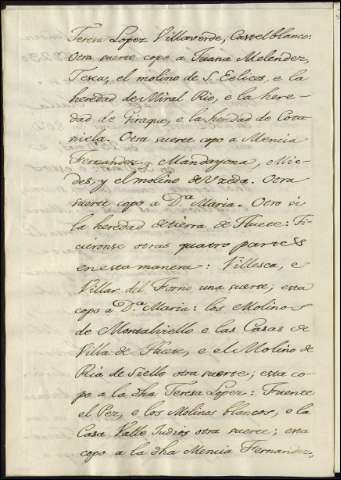 Teresa Lopez Villaverde, Castelblanco.
Otra suerte copo a Juana Melendez,
Tescu, el molino de S. Felices, e la
heredad de Miral Rio, e la here-
dad de Piraque, e la heredad de Cota-
nicla. Otra suerte copo a Mencia
Fernandez Mandayona, Mie-
des, y el molino de Uzeda. Otra
suerte copo a D.ª Maria. Otro si
la heredad de tierra de Huete: Fi-
cieronse otras quatro partes
en esta manera: Villesca, e
Villar del Forno una suerte; esta
copo a D.ª Maria: los Molinos
de Montalviello e las Casas de
Villa de Huete, e el Molino de
Ria de Siello otra suerte; esta co-
po a la dha Teresa Lopez: Fuente
el Pez, e los Molinos blancos, e la
Casa Valle Judios otra suerte; esta
copo a la dha Mencia Fernandez,